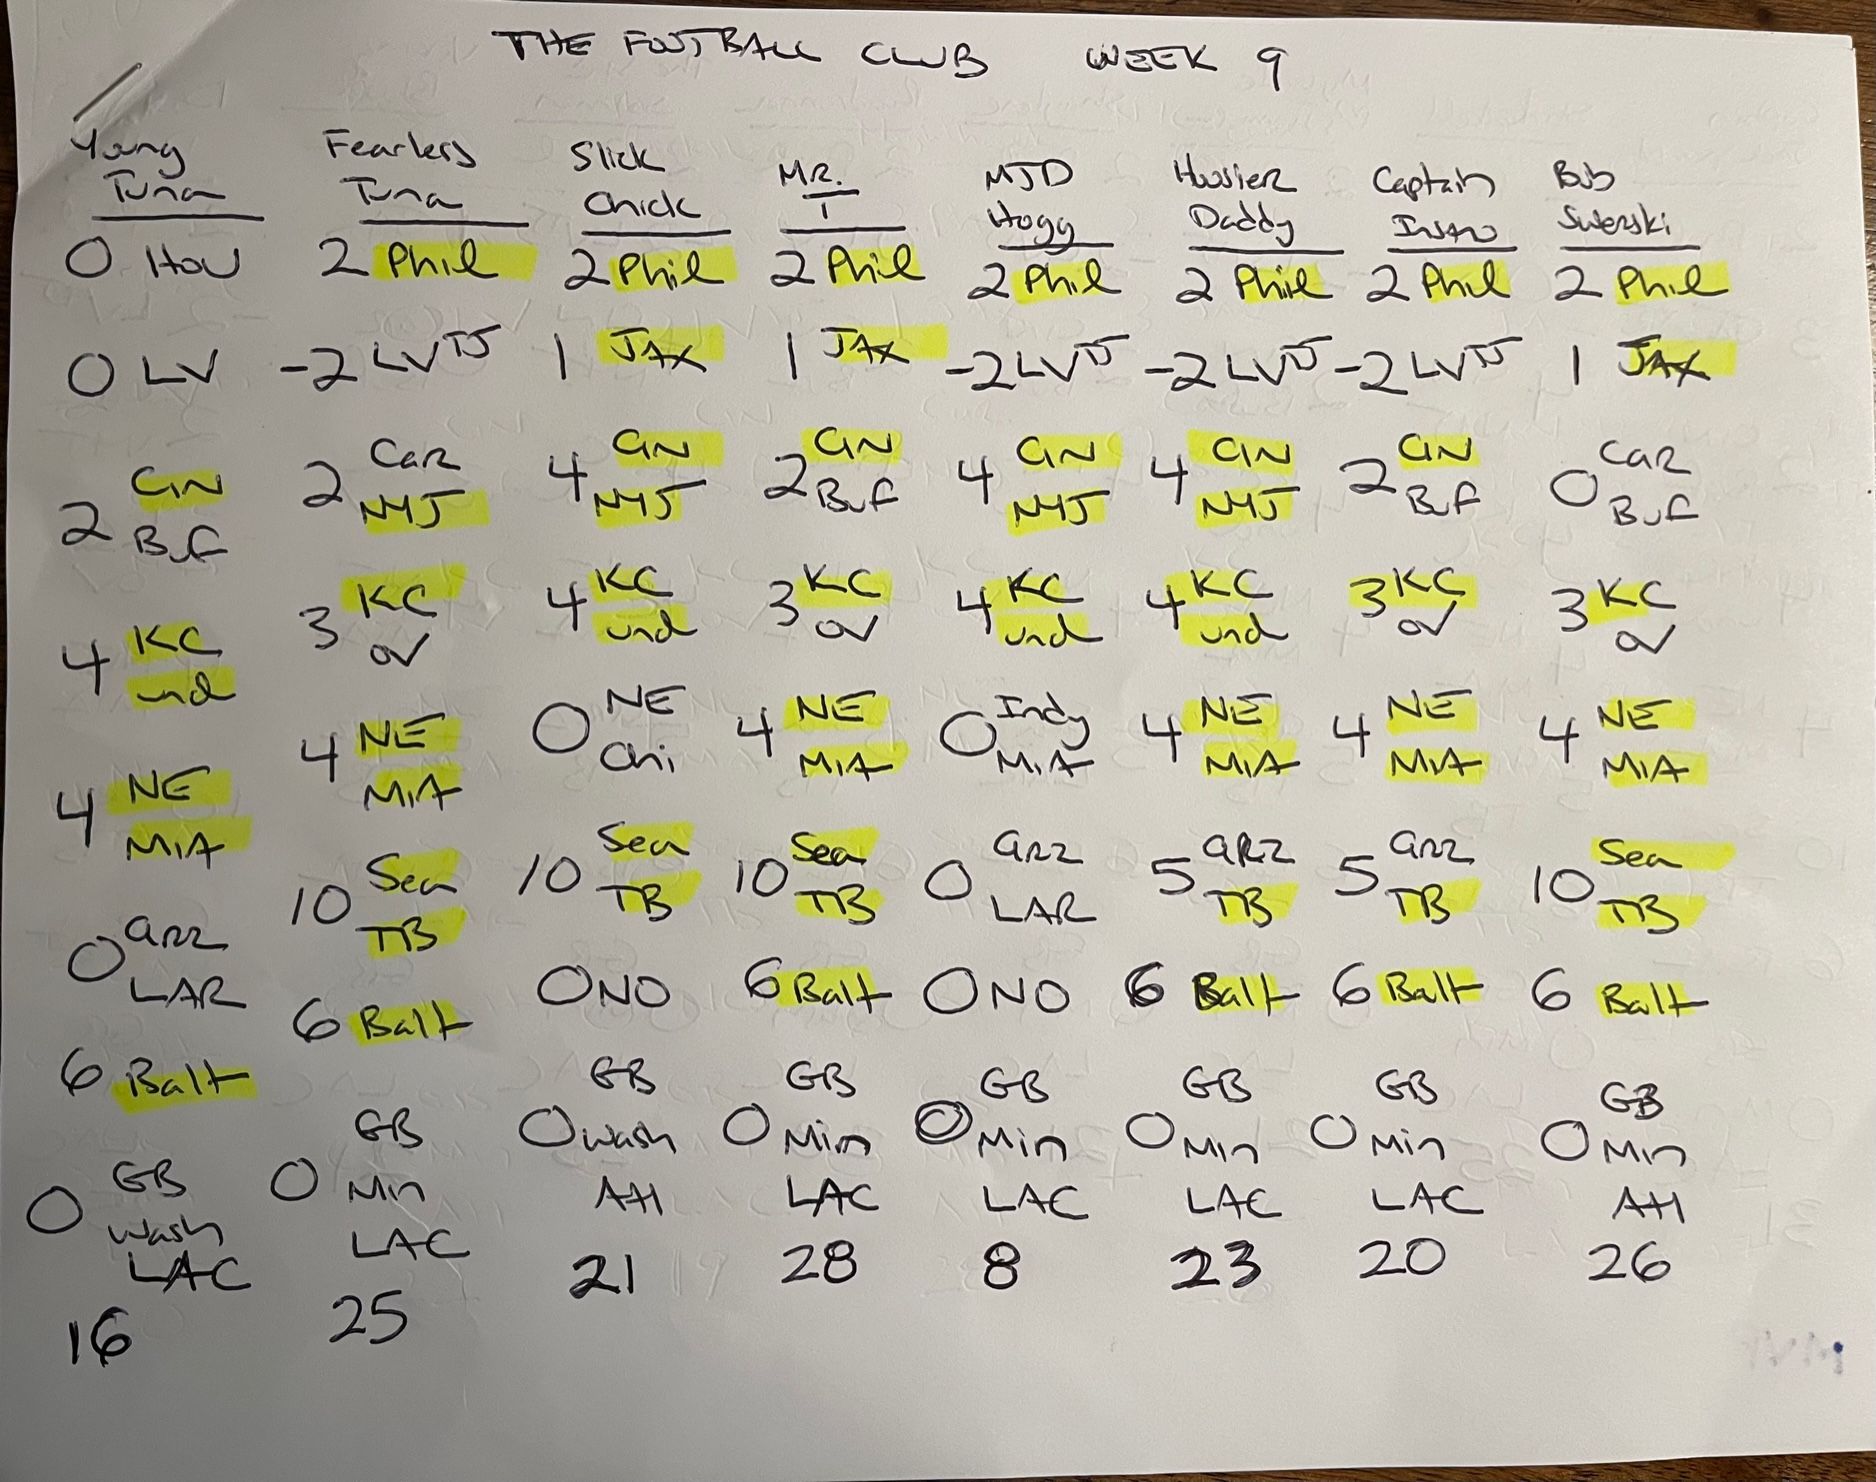 THE FOOTBALL CLUB WEEK 9
Young Tuna
0 HOU
0 LV
2 CIN
BUF
4 KC
und
4 NE
MIA
0 ARZ
LAR
6 Balt
0 GB
Wash
LAC
16
Fearless Tuna
2 Phil
-2 LV TJ
2 CAR
NYJ
3 KC
OV
4 NE
MIA
10 Sea
TB
6 Balt
0 GB
Min
LAC
25
Slick Chick
2 Phil
1 JAX
4 CIN
NYJ
4 KC
und
0 NE
Chi
10 Sea
TB
0 NO
0 GB
Wash
Atl
21
MR. T
2 Phil
1 JAX
2 CIN
BUF
3 KC
OV
4 NE
MIA
10 Sea
TB
6 Balt
0 GB
Min
LAC
28
MJD Hogg
2 Phil
-2 LV TJ
4 CIN
NYJ
4 KC
und
0 Indy
MIA
0 ARZ
LAR
0 NO
0 GB
Min
LAC
8
Hoosier Daddy
2 Phil
-2 LV TJ
4 CIN
NYJ
4 KC
und
4 NE
MIA
5 ARZ
TB
6 Balt
0 GB
Min
LAC
23
Captain Insano
2 Phil
-2 LV TJ
2 CIN
BUF
3 KC
OV
4 NE
MIA
5 ARZ
TB
6 Balt
0 GB
Min
LAC
20
Bob Swerski
2 Phil
1 JAX
0 CAR
BUF
3 KC
OV
4 NE
MIA
10 Sea
TB
6 Balt
0 GB
Min
Atl
26